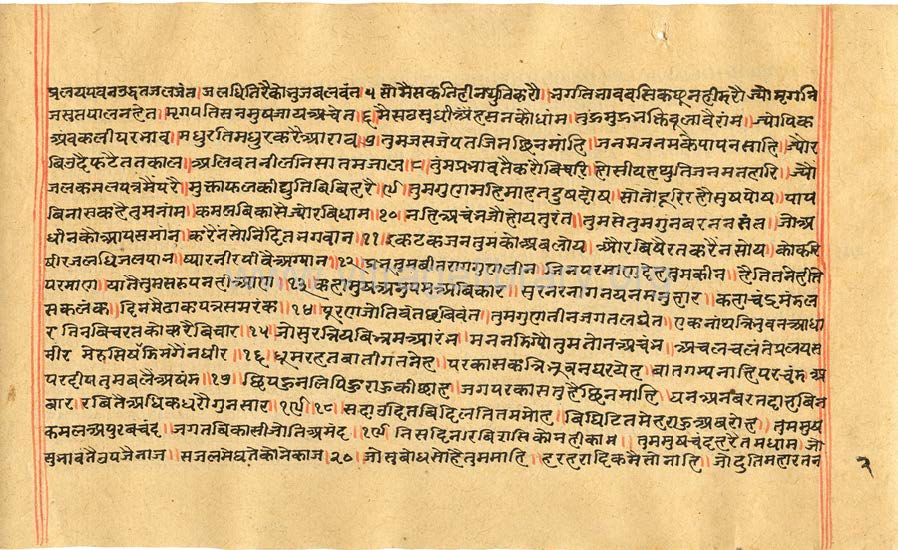 प्रलयपवनउद्धतजलजंत॥ जलधितिरैकोभुजबलवंत ५ सोमैसकतिहीनथुतिकरौ॥ भगतिभाववसिकछूनहीडरौ॥ ज्यौमृगनि
जसुतपालनहेत॥ मृगपतिसनमुषजायअचेत॥ ६॥ मैसठसुधी हसनकोधांम॥ मुझ भक्तिबुलावैरांम॥ ज्यौपिक
अंबकलीपरभाव॥ मधुरतिमधुरकरैआराव॥ ७॥ तुमजसजंपतजिनछिनमांहि॥ जनमजनमकेपापनसाहि॥ ज्यौर
बिउदैफटैततकाल॥ अलिवतनीलनिसातमजाल॥ ८॥ तुमप्रभावतैकरौबिचार॥ होसीयहथुतिजनमनहारि॥ ज्यौ
जलकमलपत्रमैपरै॥ मुक्ताफलकीद्युतिबिस्तरै॥ ९॥ तुमगुणमहिमाहतदुषदोष॥ सोतोदूरिरहौसुषपोष॥ पाप
बिनासकहैतुमनांम॥ कमलबिकासैज्यौरबिधाम॥ १०॥ नहिअचंभजोहोयतुरंत॥ तुमसेतुमगुनबरननसंत॥ जोअ
धीनकोआपसमांन॥ करैनसोनिंदितभगवान॥ ११॥ इकटकजनतुमकोअवलोय॥ औरबिषैरतकरैनसोय॥ कोकरि
षीरजलधिजलपान॥ ष्यारनीरपीवैअग्यान॥ १२॥ प्रभुतुमबीतरागगुणलीन॥ जिनपरमाणदेहतुमकीन॥ हैतितनेहीते
परमाण॥ यातैतुमसमरूपनहीआण॥ १३॥ कहांतुममुषअनुपमअबिकार॥ सुरनरनागनयनमनहार॥ कहांचंद्रमंडल
सकलंक॥ दिनमैढाकपत्रसमरंक॥ १४॥ पूरणजोतिवंतछबिवंत॥ तुमगुणतीनजगतलघंत॥ एकनाथत्रिभुवनआधा
र तिनबिचरतकोकरैबिचार॥ १५॥ जोसुरत्रियबिभ्रमआरंभ॥ मननडिग्योतुमतोनअचंभ॥ अचलचलंतेप्रलयस
मीर मेरुसिषरडिगैनधीर॥ १६॥ धूमरहतबातीगतनेह॥ परकासकत्रिभुबनघरयेह॥ बातगम्यनाहिपरचंड अ
परदीपतुमबलैअषंड॥ १७॥ छिपहुनलिपहुराहुकीछांह॥ जगपरकासतुहैछिनमांहि॥ घनअनबरतदाहबिन
बार॥ रबितैअधिकधरौगुनसार॥ १८॥ सदाउदितबिदिलतितममोह॥ बिघटितमेहराहुअबरोह॥ तुममुष
कमलअपूरबचंद॥ जगतबिकासीजोतिअमंद॥ १९॥ निसदिनसरबिससिकोनहीकाम॥ तुममुषचंदहरैतमधाम॥ जो
सुभावतैउपजेनाज॥ सजलमेघतैकोनेकाज २०॥ जोसुबोधसोहैतुममांहि॥ हरहरादिकमैसोनाहि॥ जोदुतिमहारतन
२